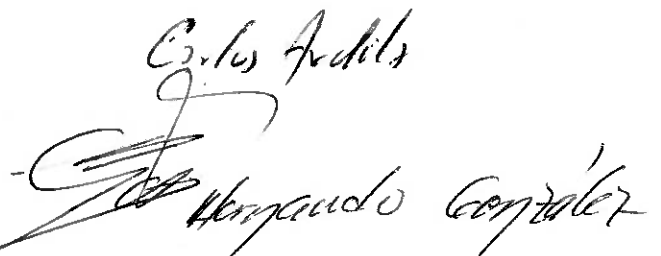 Carlos Ardila
Hernando González